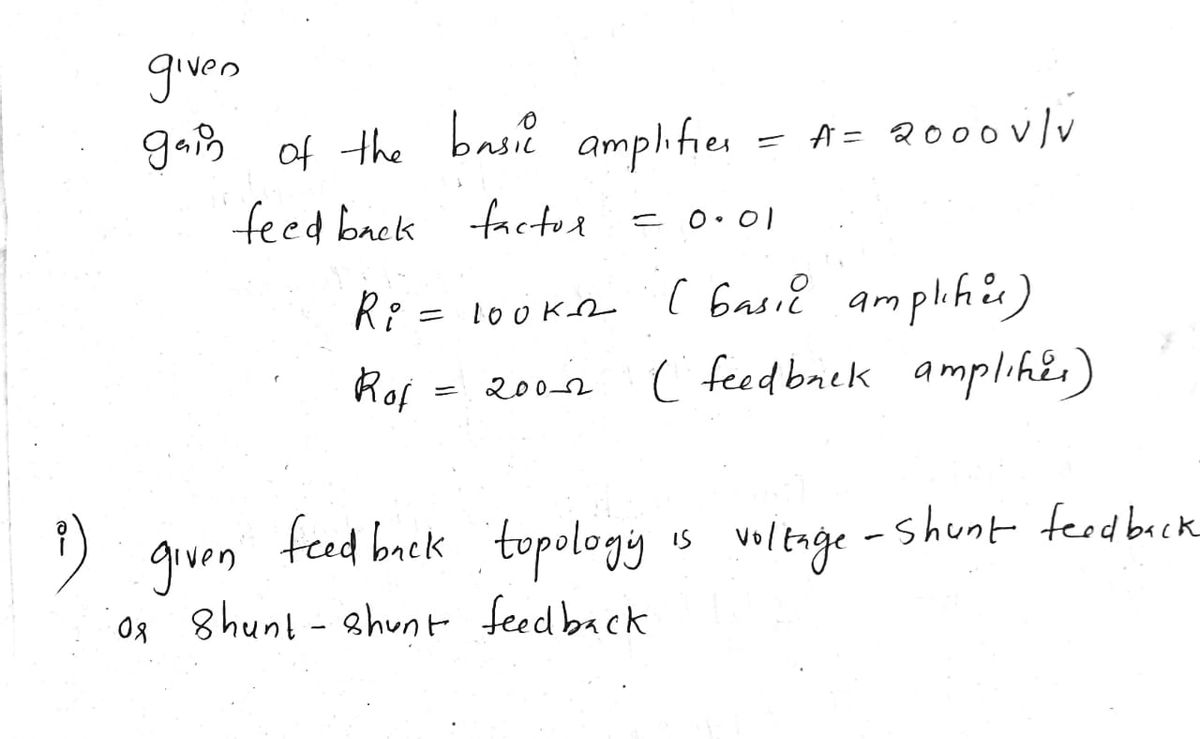 given
gain of the basic amplifier = A = 2000 V/V
feedback factor = 0.01
Ri = 100KΩ (basic amplifier)
Rof = 200Ω (feedback amplifier)
i) given feedback topology is voltage - shunt feedback
or shunt - shunt feedback